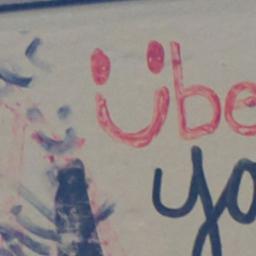 übe
yo